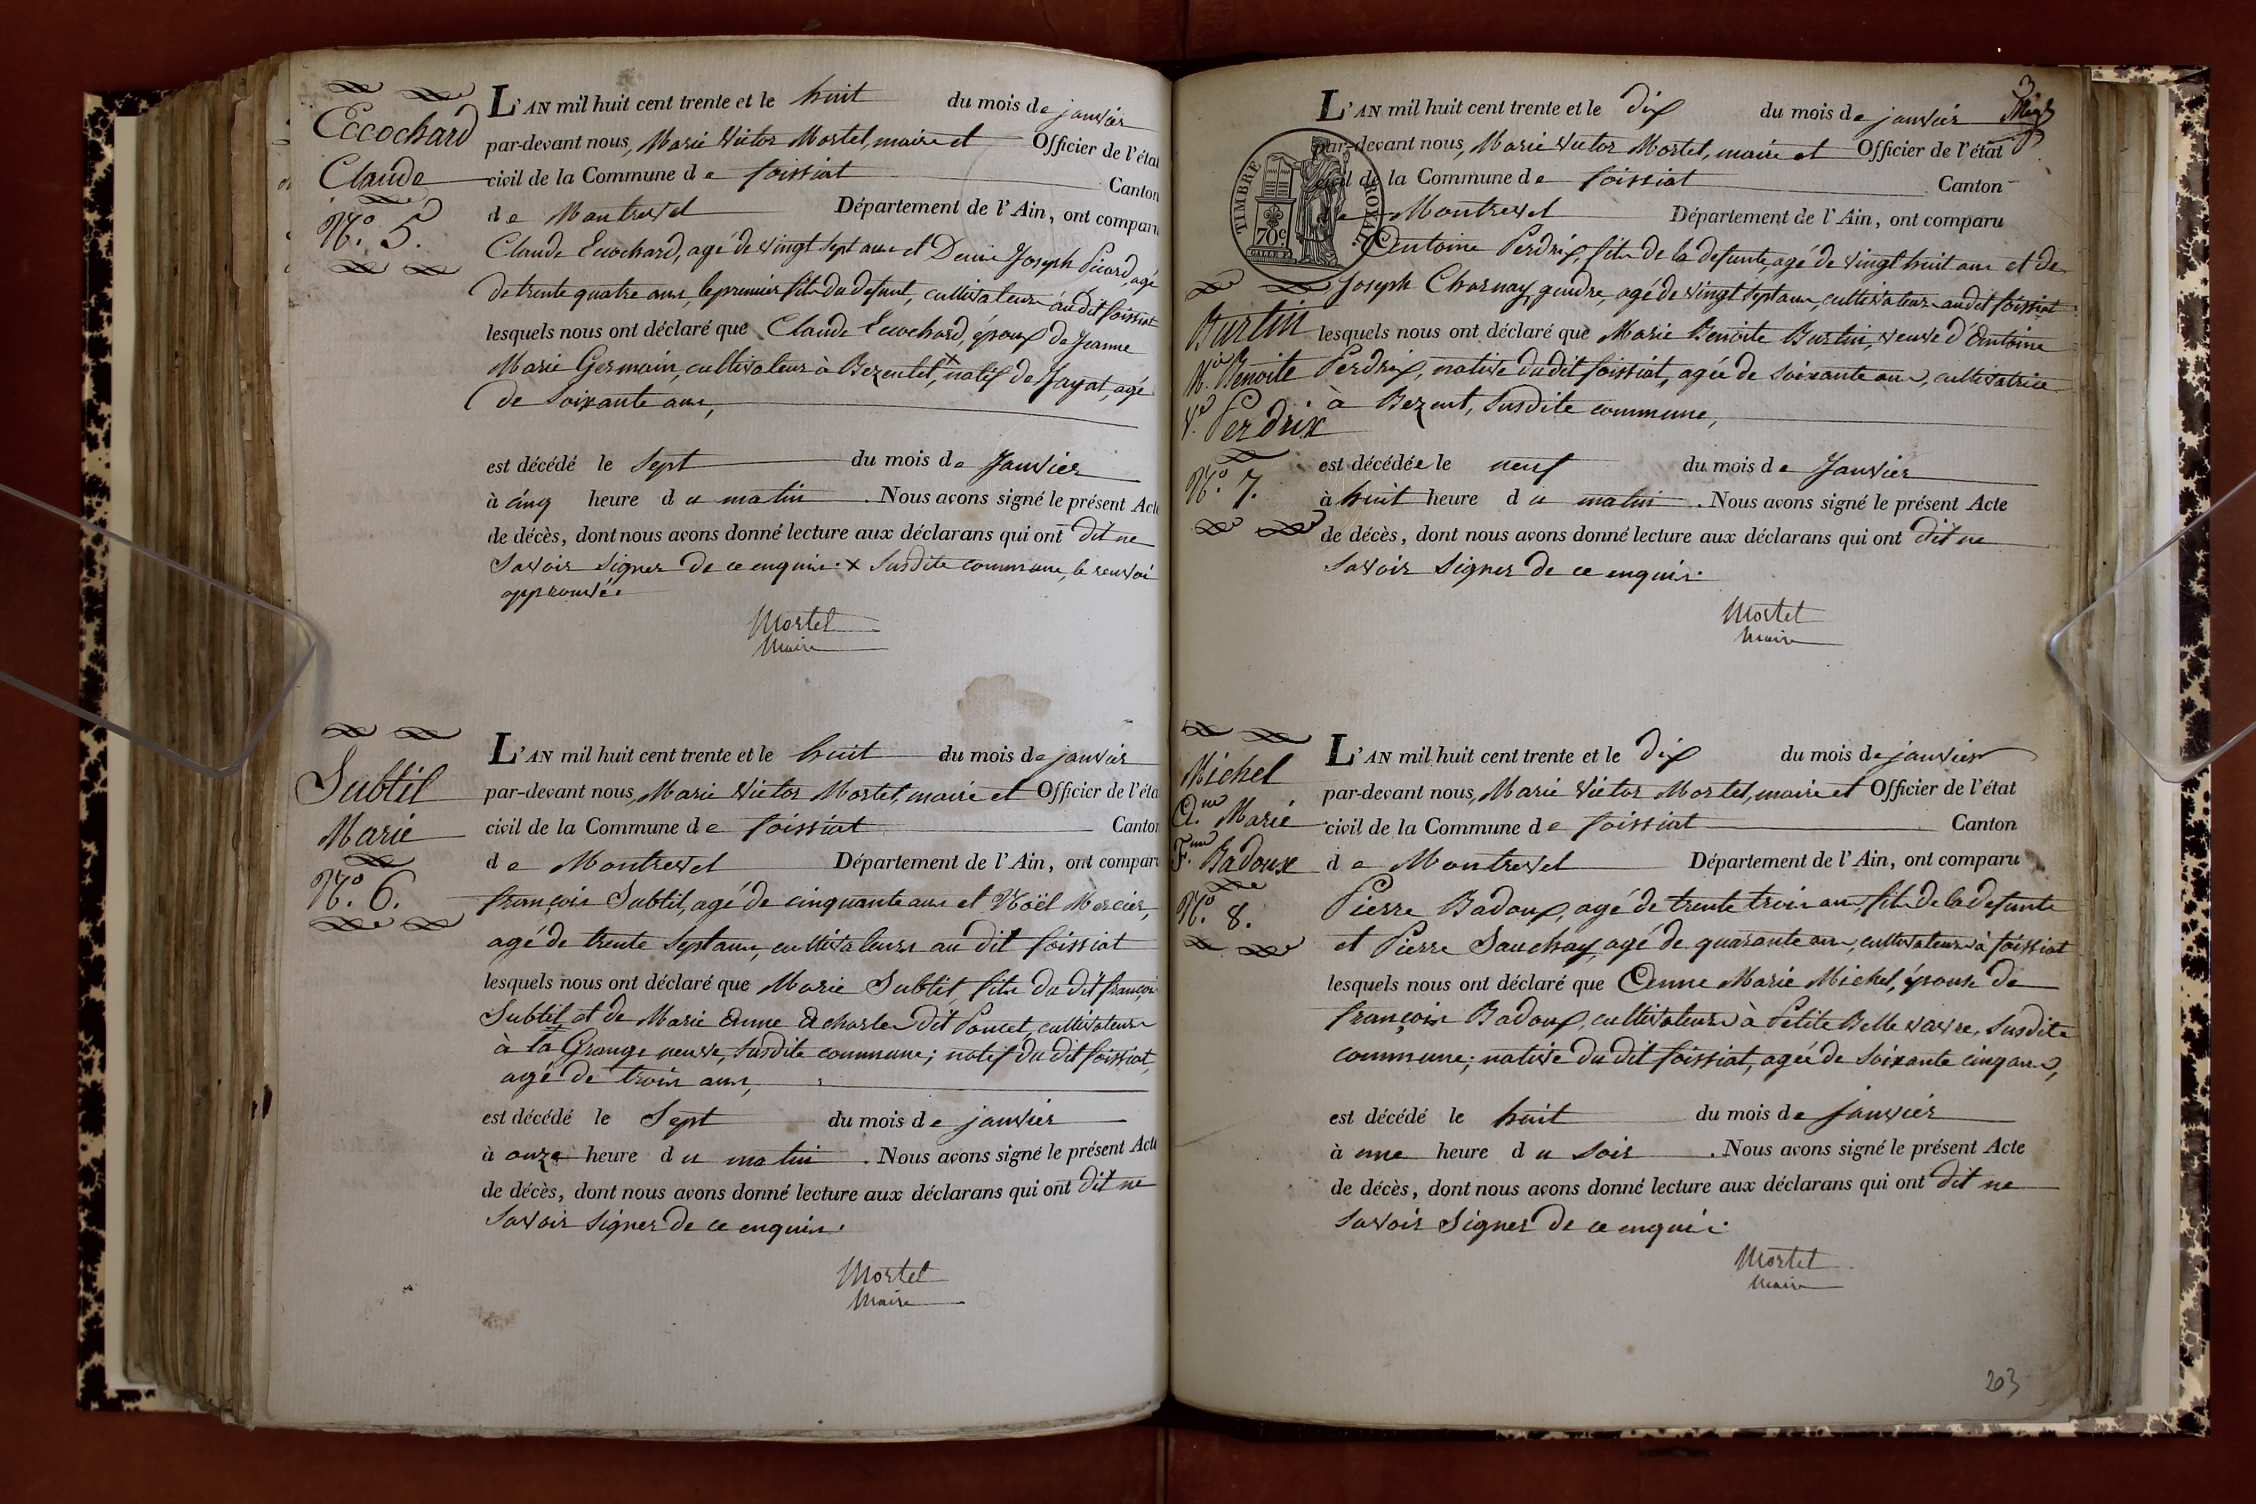 Eccochard
Claude
N.º 5.
L'AN mil huit cent trente et le huit du mois de janvier
par-devant nous, Marie Victor Mortel, maire et Officier de l'état
civil de la Commune de foissiat Canton
de Montrevel Département de l'Ain, ont comparu
Claude Eccochard, agé de vingt sept ans et Denis Joseph Picard, agé
de trente quatre ans, le premier fils du defunt, cultivateurs au dit foissiat
lesquels nous ont déclaré que Claude Eccochard, époux de Jeanne
Marie Germain, cultivateur à Bezentet, x natif de Jayat, agé
de soixante ans,
est décédé le sept du mois de Janvier
à cinq heure du matin. Nous avons signé le présent Acte
de décès, dont nous avons donné lecture aux déclarans qui ont dit ne
savoir signer de ce enquis. x susdite commune, le renvoi
approuvée
Mortel
Maire
Subtil
Marie
N.º 6.
L'AN mil huit cent trente et le huit du mois de janvier
par-devant nous, Marie Victor Mortel, maire et Officier de l'éta
civil de la Commune de foissiat Canton
de Montrevel Département de l'Ain, ont comparu
françois Subtil, agé de cinquante ans et Noël Mercier,
agé de trente sept ans, cultivateurs au dit foissiat
lesquels nous ont déclaré que Marie Subtil, fils du dit françois
Subtil et de Marie Anne Acharles dit Poncet, cultivateurs
à la Grange neuve, susdite commune; natif du dit foissiat,
agé de trois ans,
est décédé le Sept du mois de janvier
à onze heure du matin. Nous avons signé le présent Acte
de décès, dont nous avons donné lecture aux déclarans qui ont dit ne
savoir signer de ce enquis.
Mortel
Maire
3
TIMBRE ROYAL
70 c
L'AN mil huit cent trente et le dix du mois de janvier
par-devant nous, Marie Victor Mortel, maire et Officier de l'état
civil de la Commune de foissiat Canton
de Montrevel Département de l'Ain, ont comparu
Antoine Perdrix, fils de la defunte, agé de vingt huit ans et de
Joseph Charnay, gendre, agé de vingt sept ans, cultivateurs au dit foissiat
Burtin
M.ie Benoite
V.e Perdrix
N.º 7.
lesquels nous ont déclaré que Marie Benoite Burtin, veuve d'Antoine
Perdrix, native du dit foissiat, agée de soixante ans, cultivatrice
à Bezent, susdite commune,
est décédée le neuf du mois de Janvier
à huit heure du matin. Nous avons signé le présent Acte
de décès, dont nous avons donné lecture aux déclarans qui ont dit ne
savoir signer de ce enquis.
Mortel
Maire
Michel
A.ne Marie
F.me Badoux
N.º 8.
L'AN mil huit cent trente et le dix du mois de janvier
par-devant nous, Marie Victor Mortel, maire et Officier de l'état
civil de la Commune de foissiat Canton
de Montrevel Département de l'Ain, ont comparu
Pierre Badoux, agé de trente trois ans, fils de la defunte
et Pierre Sauchay, agé de quarante ans, cultivateurs à foissiat
lesquels nous ont déclaré que Anne Marie Michel, épouse de
françois Badoux, cultivateurs à Petite Belle vavre, susdite
commune; native du dit foissiat, agée de soixante cinq ans,
est décédé le huit du mois de janvier
à une heure du soir. Nous avons signé le présent Acte
de décès, dont nous avons donné lecture aux déclarans qui ont dit ne
savoir signer de ce enquis.
Mortel
Maire
203